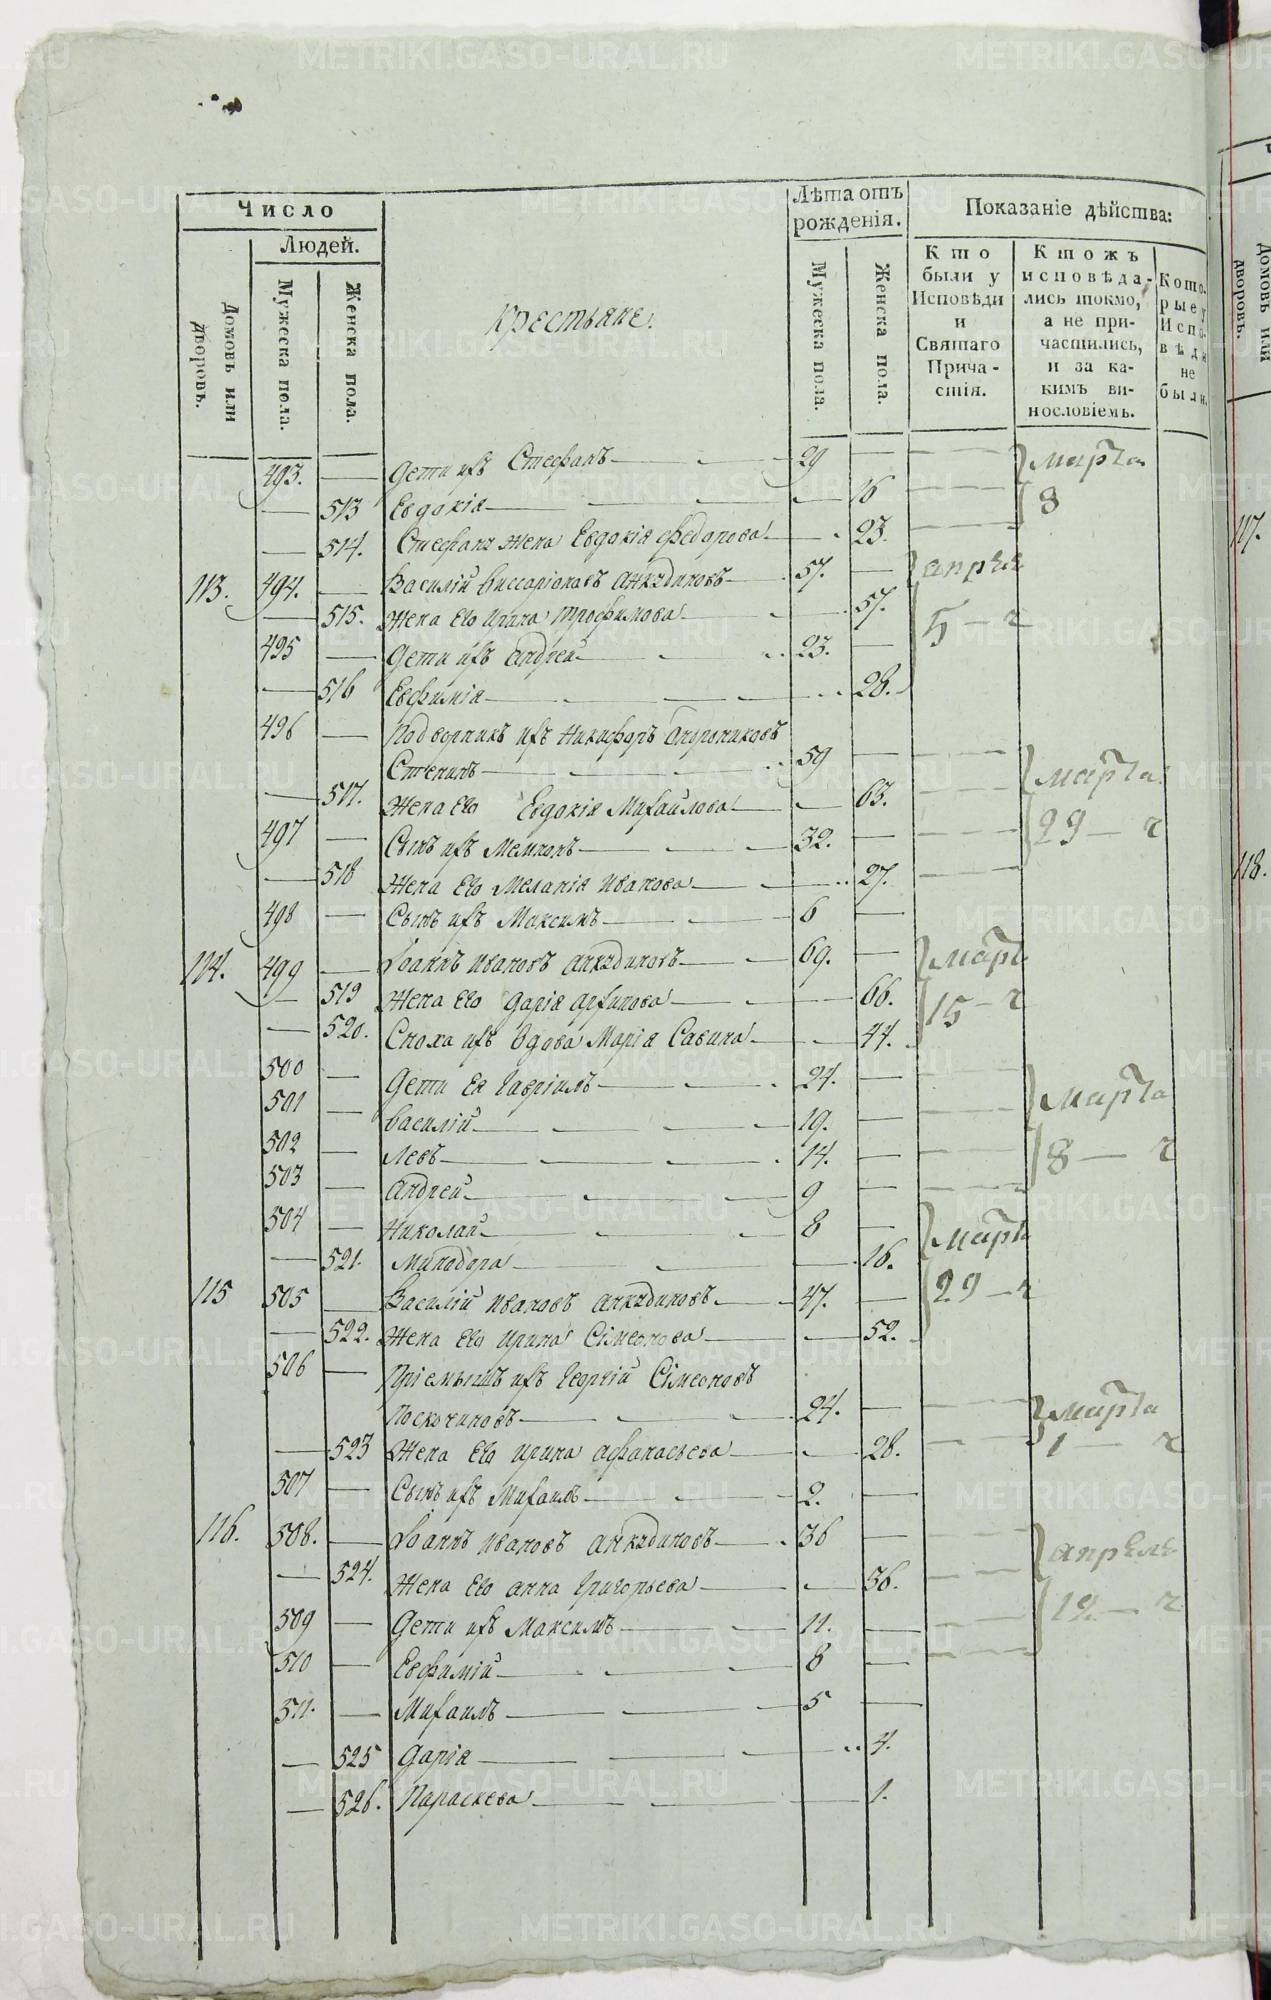 Число
Людей.
Домовъ или дворовъ.
Мужеска пола.
Женска пола.
Крестьяне.
Лѣта отъ рожденія.
Мужеска пола.
Женска пола.
Показаніе дѣйства:
Кто были у Исповѣди и Святаго Причастія.
Ктожъ исповѣдались токмо, а не причастились, и за какимъ винословіемъ.
Которые у Исповѣди не были.
493. — Дети ихъ Стефанъ — 29 — Марта
— 513 Евдокія — 16 8
— 514. Стефана жена Евдокія Федорова — 23.
113. 494. — Василій Виссаріоновъ Анкудиновъ — 57. — апреля
— 515. Жена Его Ирина Трофимова — 57. 5 – ч
495 — Дети ихъ Андрей — 23. —
— 516 Евфимія — 28.
496 — Подворникъ ихъ Никифоръ
Степинъ — 59 — марта
— 517. Жена Его Евдокія Михайлова — 63.
497 — Сынъ ихъ Мемнонъ — 32. — 29 – ч
— 518 Жена Его Меланія Иванова — 27.
498 — Сынъ ихъ Максимъ — 6 —
114. 499 — Іоаннъ Ивановъ Анкудиновъ — 69. — марта
— 519 Жена Его Дарія — 66. 15 – ч
— 520. Сноха ихъ вдова Марія Савина — 44.
500 — Дети Ея Гавріилъ — 24. —
501 — Василій — 19. — Марта
502 — Левъ — 14. — 8 — ч
503 — Андрей — 9 —
504 — Николай — 8 — марта
— 521. Минодора — 16.
115 505 — Василій Ивановъ Анкудиновъ — 47. — 29 – ч
— 522. Жена Его Ирина Сімеонова — 52.
506 — Пріемышъ ихъ Георгій Сімеоновъ
Поскочиновъ — 24. — марта
— 523 Жена Его Ирина Афанасьева — 28. 1 — ч
507 — Сынъ ихъ Михаилъ — 2. —
116. 508. — Іоаннъ Ивановъ Анкудиновъ — 36 — апреля
— 524. Жена Его Анна Григорьева — 36.
509 — Дети ихъ Максимъ — 11. — 19. — ч
510 — Евфимій — 8 —
511. — Михаилъ — 5 —
— 525 Дарія — 4.
— 526. Параскева — 1.
Домовъ или дворовъ.
117.
118.
METRIKI.GASO-URAL.RU